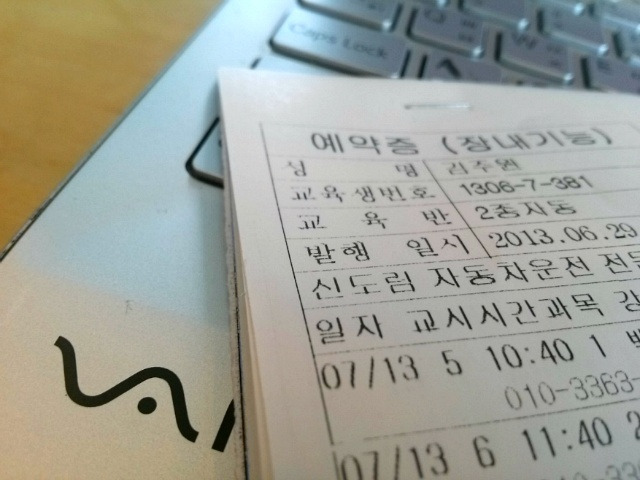 Caps Lock
A
예약증 (장내기능)
성 명 김주원
교육생번호 1306-7-381
교 육 반 2종자동
발행 일시 2013.06.29
신도림 자동차운전 전
일자 교시시간과목 강
07/13 5 10:40 1
010-3363-
07/13 6 11:40 2
VAI